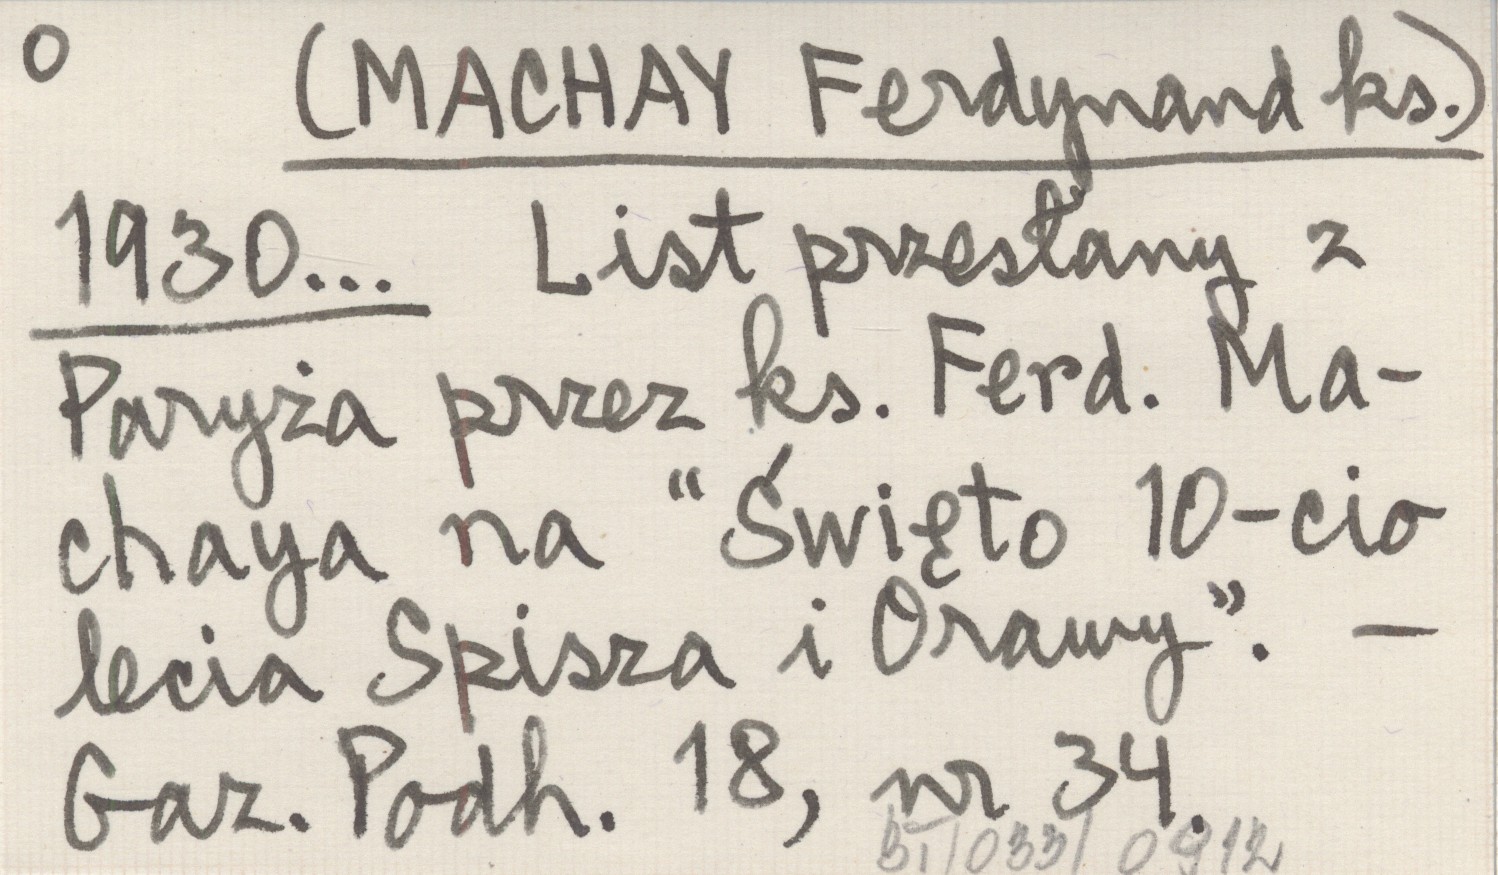 O (MACHAY Ferdynand ks.)
1930... List przesłany z
Paryża przez ks. Ferd. Ma-
chaya na "Święto 10-cio
lecia Spisza i Orawy". —
Gaz. Podh. 18, nr 34.
0912